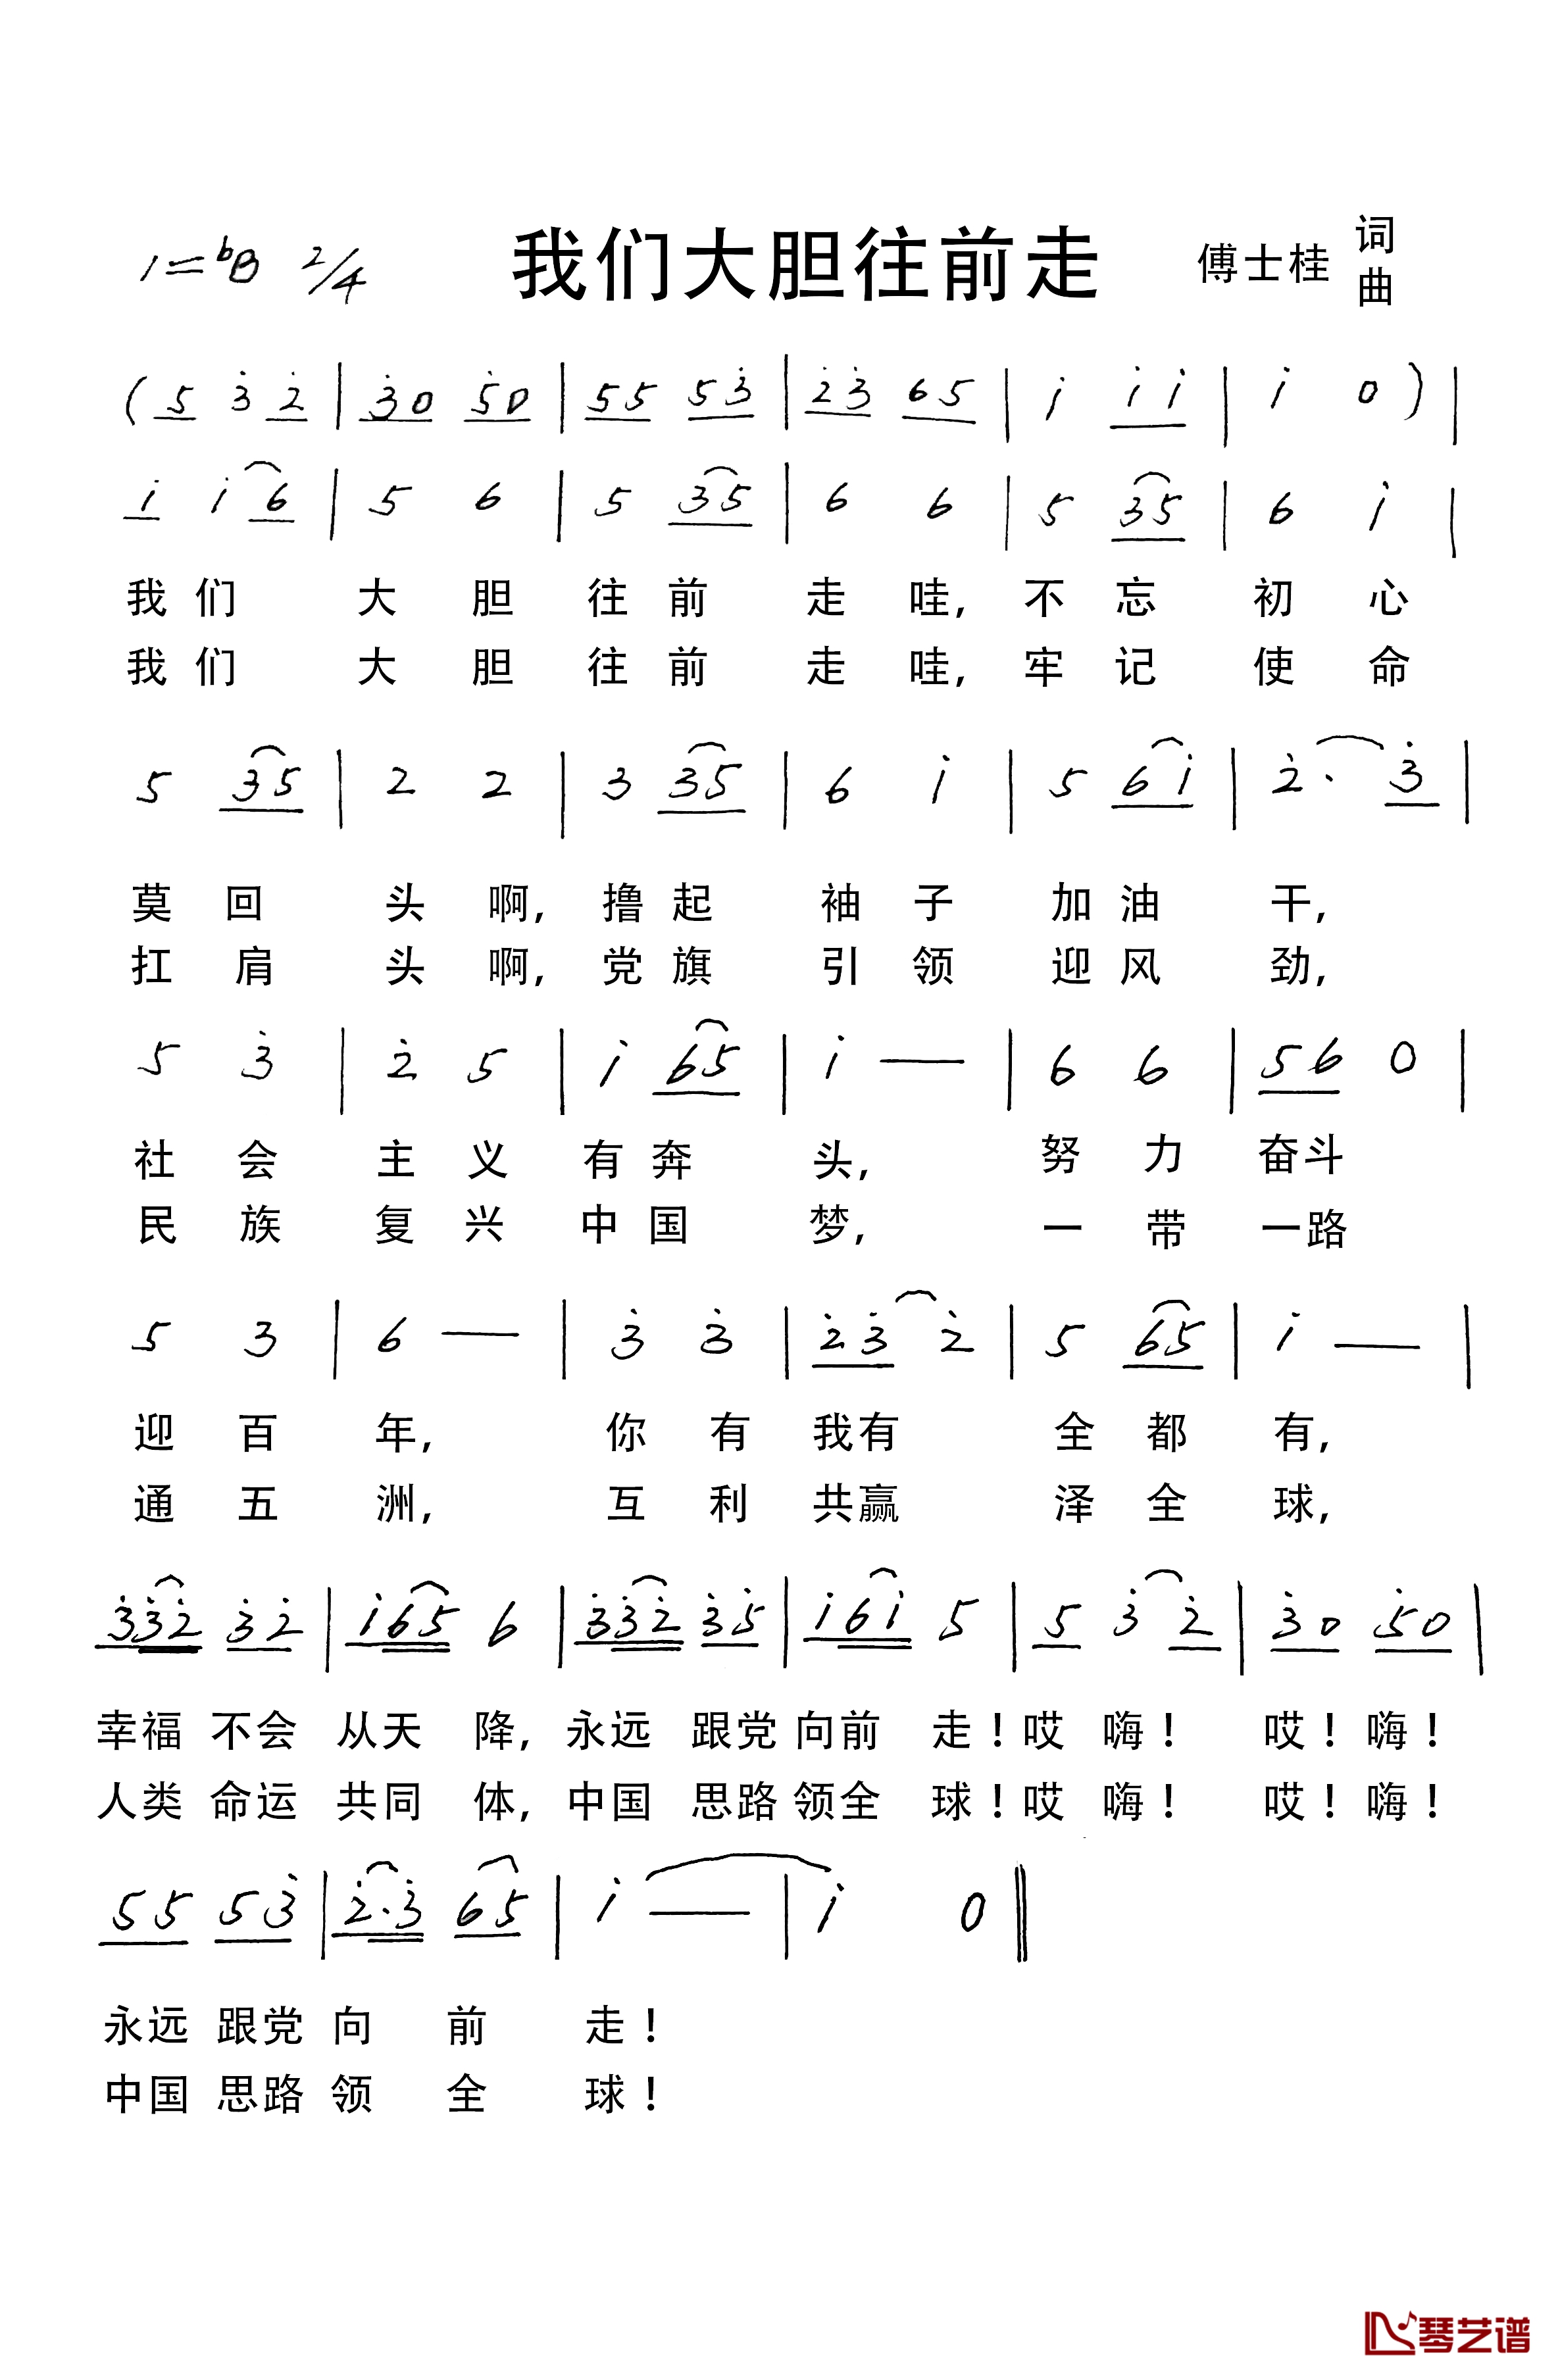 1=ᵇB 2/4 我们大胆往前走 傅士桂 词曲
( 5 3̇ 2̇ | 3̇ 0 5̇ 0 | 5 5 5 3̇ | 2̇ 3̇ 6 5 | 1̇ 1̇ 1̇ | 1̇ 0 ) |
1̇ 1̇ 6 | 5 6 | 5 3 5 | 6 6 | 5 3 5 | 6 1̇ |
我 们 大 胆 往 前 走 哇, 不 忘 初 心
我 们 大 胆 往 前 走 哇, 牢 记 使 命
5 3 5 | 2 2 | 3 3 5 | 6 1̇ | 5 6 1̇ | 2̇ · 3̇ |
莫 回 头 啊, 撸 起 袖 子 加 油 干,
扛 肩 头 啊, 党 旗 引 领 迎 风 劲,
5 3̇ | 2̇ 5 | 1̇ 6 5 | 1̇ — | 6 6 | 5 6 0 |
社 会 主 义 有 奔 头, 努 力 奋斗
民 族 复 兴 中 国 梦, 一 带 一路
5 3 | 6 — | 3̇ 3̇ | 2̇ 3̇ 2̇ | 5 6 5 | 1̇ — |
迎 百 年, 你 有 我有 全 都 有,
通 五 洲, 互 利 共赢 泽 全 球,
3̇ 3̇ 2̇ 3̇ 2̇ | 1̇ 6 5 6 | 3̇ 3̇ 2̇ 3̇ 5̇ | 1̇ 6 1̇ 5 | 5 3̇ 2̇ | 3̇ 0 5̇ 0 |
幸福 不会 从天 降, 永远 跟党 向前 走！哎 嗨！ 哎！嗨！
人类 命运 共同 体, 中国 思路 领全 球！哎 嗨！ 哎！嗨！
5 5 5 3̇ | 2̇ · 3̇ 6 5 | 1̇ — | 1̇ 0 ‖
永远 跟党 向 前 走！
中国 思路 领 全 球！
琴艺谱